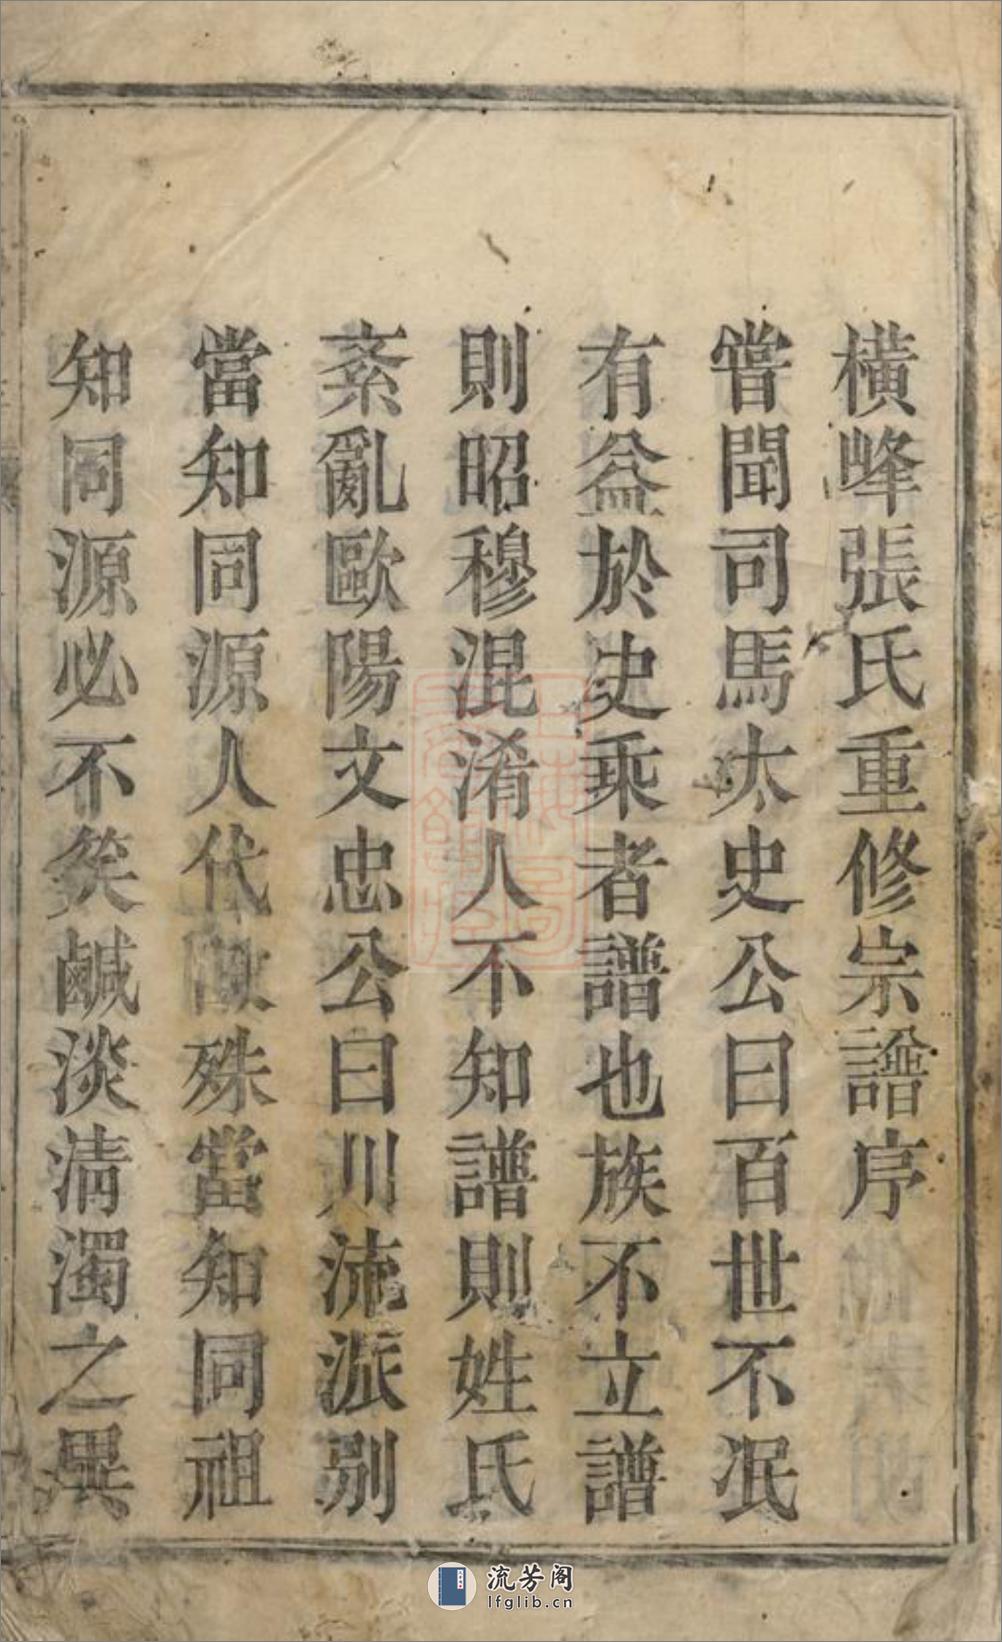 橫峰張氏重修宗譜序
嘗聞司馬太史公曰百世不泯
有益於史乘者譜也族不立譜
則昭穆混淆人不知譜則姓氏
紊亂歐陽文忠公曰川流派別
當知同源人代殊當知同祖
知同源必不矣鹹淡清濁之異
流芳阁
lfglib.cn